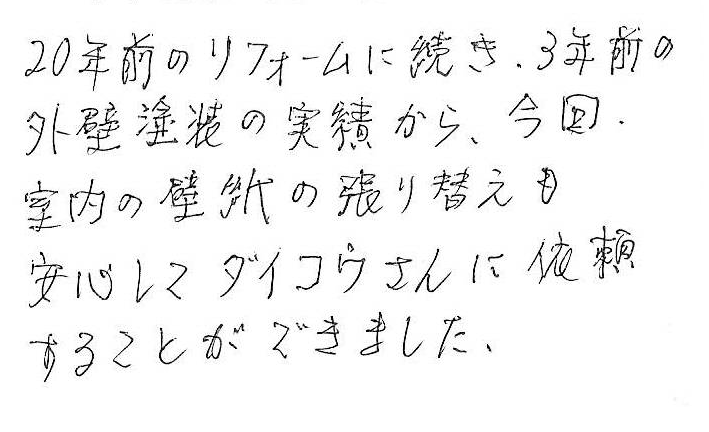 20年前のリフォームに続き、3年前の
外壁塗装の実績から、今回、
室内の壁紙の張り替えも
安心してダイコウさんに依頼
することができました、